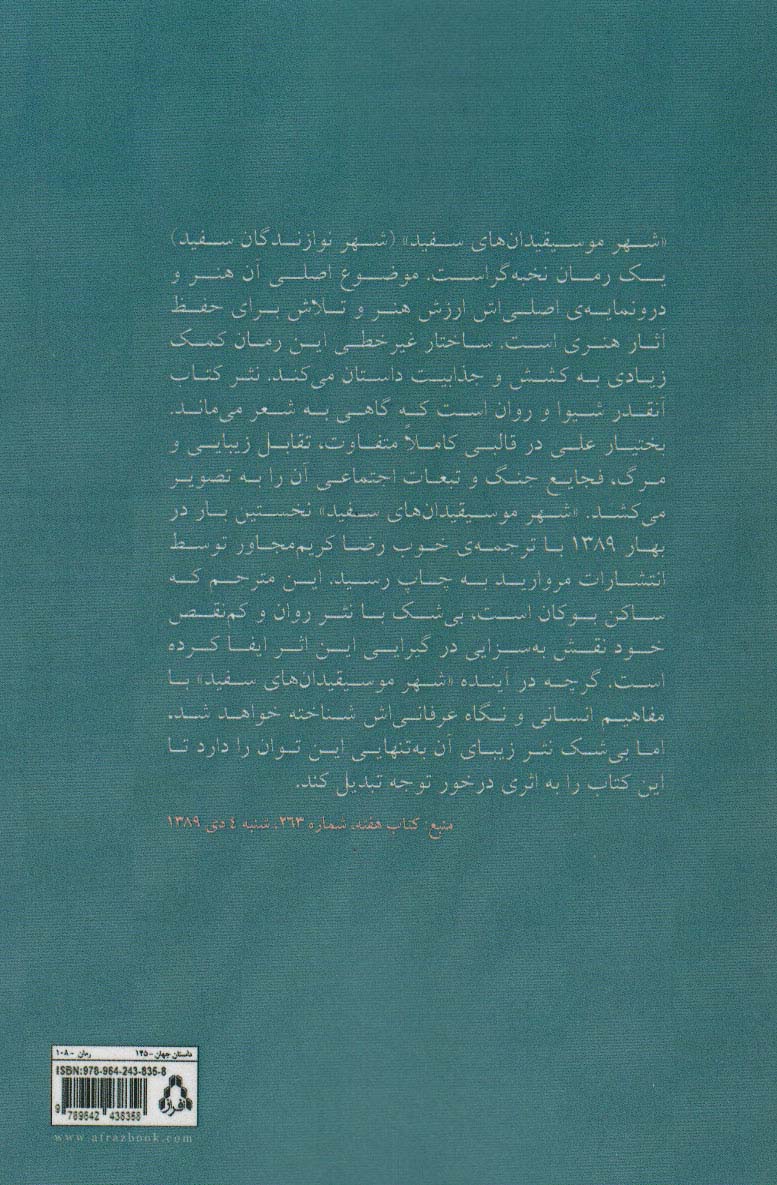 «شهر موسیقیدان‌های سفید» (شهر نوازندگان سفید)
یک رمان نخبه‌گراست. موضوع اصلی آن هنر و
درونمایه‌ی اصلی‌اش ارزش هنر و تلاش برای حفظ
آثار هنری است. ساختار غیرخطی این رمان کمک
زیادی به کشش و جذابیت داستان می‌کند. نثر کتاب
آنقدر شیوا و روان است که گاهی به شعر می‌ماند.
بختیار علی در قالبی کاملاً متفاوت، تقابل زیبایی و
مرگ، فجایع جنگ و تبعات اجتماعی آن را به تصویر
می‌کشد. «شهر موسیقیدان‌های سفید» نخستین بار در
بهار ۱۳۸۹ با ترجمه‌ی خوب رضا کریم‌مجاور توسط
انتشارات مروارید به چاپ رسید. این مترجم که
ساکن بوکان است، بی‌شک با نثر روان و کم‌نقص
خود نقش به‌سزایی در گیرایی این اثر ایفا کرده
است. گرچه در آینده «شهر موسیقیدان‌های سفید» با
مفاهیم انسانی و نگاه عرفانی‌اش شناخته خواهد شد،
اما بی‌شک نثر زیبای آن به‌تنهایی این توان را دارد تا
این کتاب را به اثری درخور توجه تبدیل کند.
منبع: کتاب هفته، شماره ۲۶۳، شنبه ۴ دی ۱۳۸۹
داستان جهان - ۱۴۵ رمان - ۱۰۸
ISBN:978-964-243-835-8
افراز
9 789642 438358
www.afrazbook.com